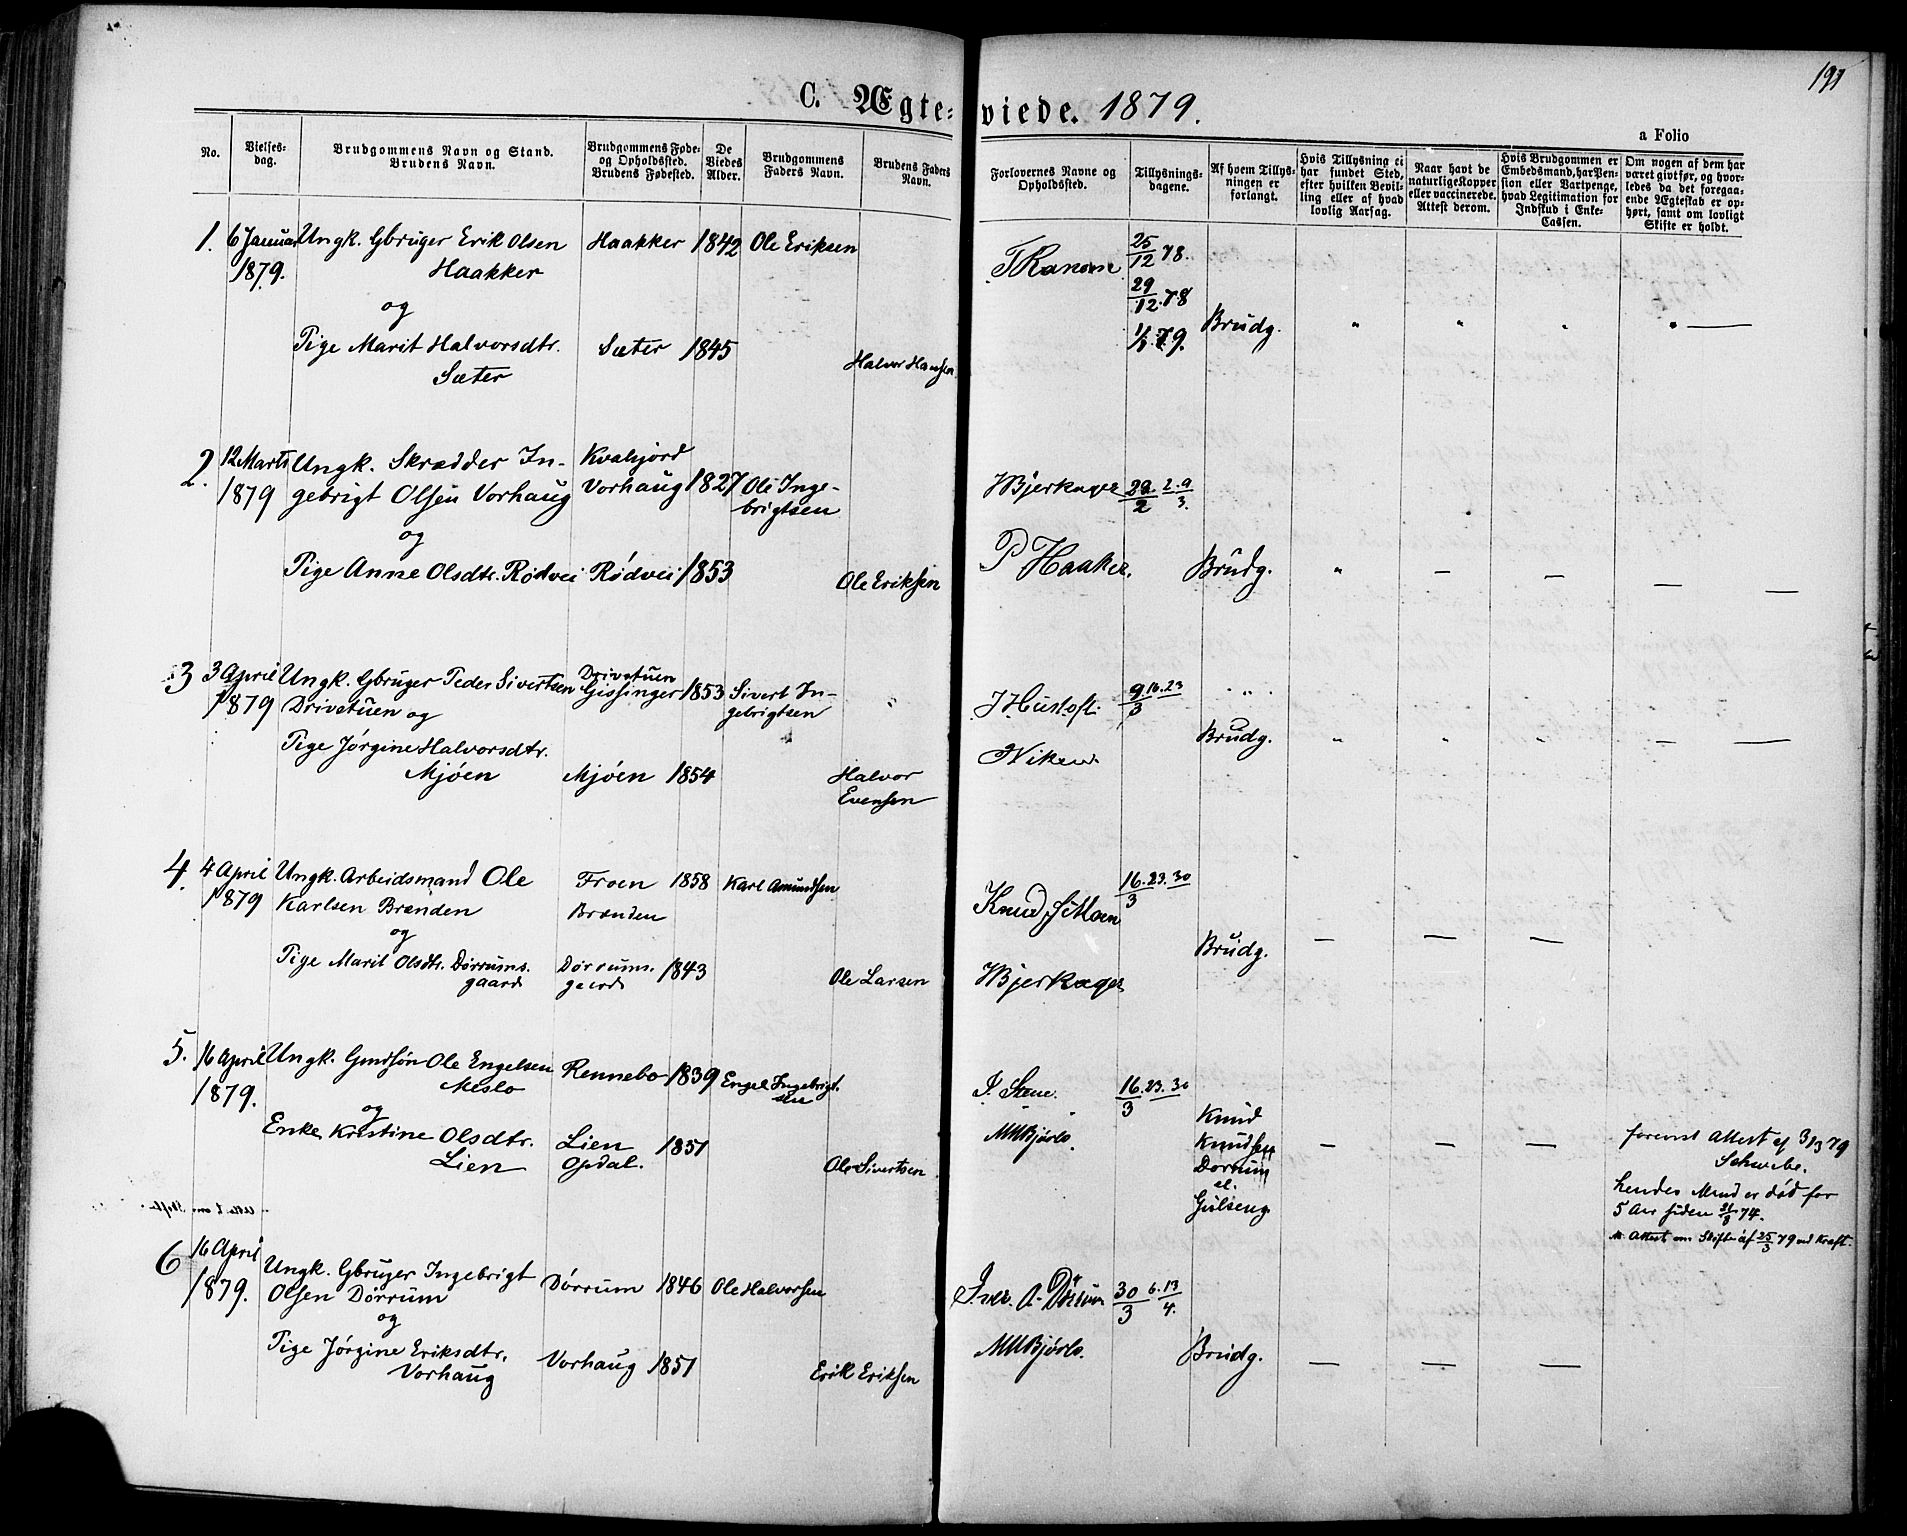 191
C. Ægte-viede. 1879.
a Folio
No.
Vielses-
dag.
Brudgommens Navn og Stand.
Brudens Navn.
Brudgommens Føde-
og Opholdssted.
Brudens Fødested.
De
Viedes
Alder.
Brudgommens
Faders Navn.
Brudens Faders
Navn.
Forlovernes Navne og
Opholdssted.
Tillysnings-
dagene.
Af hvem Tillys-
ningen er
forlangt.
Hvis Tillysning ei
har fundet Sted,
efter hvilken Bevil-
ling eller af hvad
lovlig Aarsag.
Naar havt de
naturlige Kopper
eller vaccinerede.
Attest derom.
Hvis Brudgommen er
Embedsmand, har Pen-
sion eller Vartpenge,
hvad Legitimation for
Indskud i Enke-
Cassen.
Om nogen af dem har
været givt før, og hvor-
ledes da det foregaa-
ende Ægteskab er op-
hørt, samt om lovligt
Skifte er holdt.
1. 6 Januar Ungk. Gbruger Erik Olsen Haakker 1842 Ole Eriksen
1879. Haakker
og
Pige Marit Halvorsdtr. Sæter 1845
Sæter Halvor Hansen
25/12 78.
29/12.78
1/1.79. Brudg. " " " "
2. 12 Marts Ungk. Skrædder In- Kvahjord
1879 gebrigt Olsen Vorhaug Vorhaug 1827 Ole Inge-
brigtsen
og
Pige Anne Olsdtr. Rødvei Rødvei 1853 Ole Eriksen
Bjerkager 2. 9/3.
P Haaker. Brudg. " — — — —
3 3 April Ungk. Gbruger Peder Sivertsen Drivstuen
Gissinger 1853 Sivert In-
gebrigtsen "
1879 Drivstuen og
Pige Jørgine Halvorsdtr.
Mjøen Mjøen 1854 Halvor
Evensen
9. 16. 23/3 " " "
Brudg. " " " — —
4. 4 April Ungk. Arbeidsmand Ole Froen 1858 Karl Amundsen
1879 Karlsen Brænden Brænden
og
Pige Marit Olsdtr. Dørrums- Dørrums- 1843 Ole Larsen
gaard gaard
Knud Moen 16. 23. 30/3
Bjerkager Brudg. — — —
5. 16 April Ungk. Gmdsøn Ole Engelsen Rennebo 1839 Engel Ingebrigt-
sen
1879. Meslo
og
Enke Kristine Olsdtr. Lien 1851
Lien Opdal. Ole Sivertsen
J. Stene. 16. 23. 30/3
MMBjørlo. Knud
Knudsen
Dorrum
el.
Gulseng — — —
forevist Attest af 3/3 79
Schwebe.
hendes Mand er død for
5 Aar siden 74.
Attest om Skifte af 25/3 79 ved Kraft.
6 16 April
1879. Ungk. Gbruger Ingebrigt Dørrum 1846 Ole Halvorsen
Olsen Dørrum
og
Pige Jørgine Eriksdtr. Vorhaug 1851 Erik Eriksen
Vorhaug
Iver A. Dørrum 30/3 6. 13/4.
MMBjørlo. Brudg. — — —